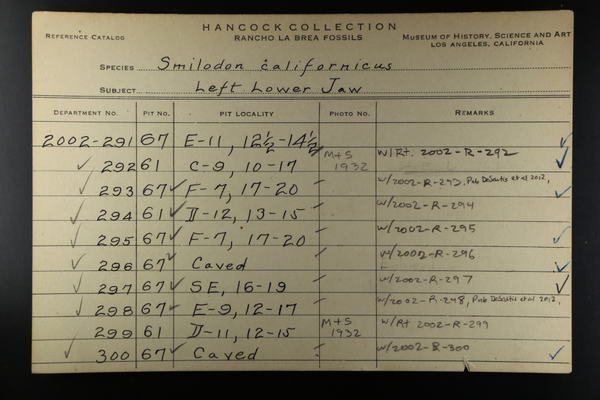 HANCOCK COLLECTION
REFERENCE CATALOG RANCHO LA BREA FOSSILS MUSEUM OF HISTORY, SCIENCE AND ART
LOS ANGELES, CALIFORNIA
SPECIES Smilodon californicus
SUBJECT Left Lower Jaw
DEPARTMENT NO. PIT NO. PIT LOCALITY PHOTO NO. REMARKS
2002-291 67 E-11, 12½-14½ ✓
✓ 292 61 C-9, 10-17 M+S 1932 w/Rt. 2002-R-292 ✓
✓ 293 67 ✓ F-7, 17-20 w/2002-R-293, Pub DeSantis et al 2012, ✓
✓ 294 61 ✓ D-12, 13-15 w/2002-R-294
✓ 295 67 ✓ F-7, 17-20 w/2002-R-295 ✓
✓ 296 67 ✓ Caved w/2002-R-296 ✓
✓ 297 67 ✓ SE, 16-19 w/2002-R-297 ✓
✓ 298 67 ✓ E-9, 12-17 w/2002-R-298, Pub DeSantis et al 2012,
299 61 D-11, 12-15 M+S 1932 w/Rt 2002-R-299
✓ 300 67 ✓ Caved w/2002-R-300 ✓